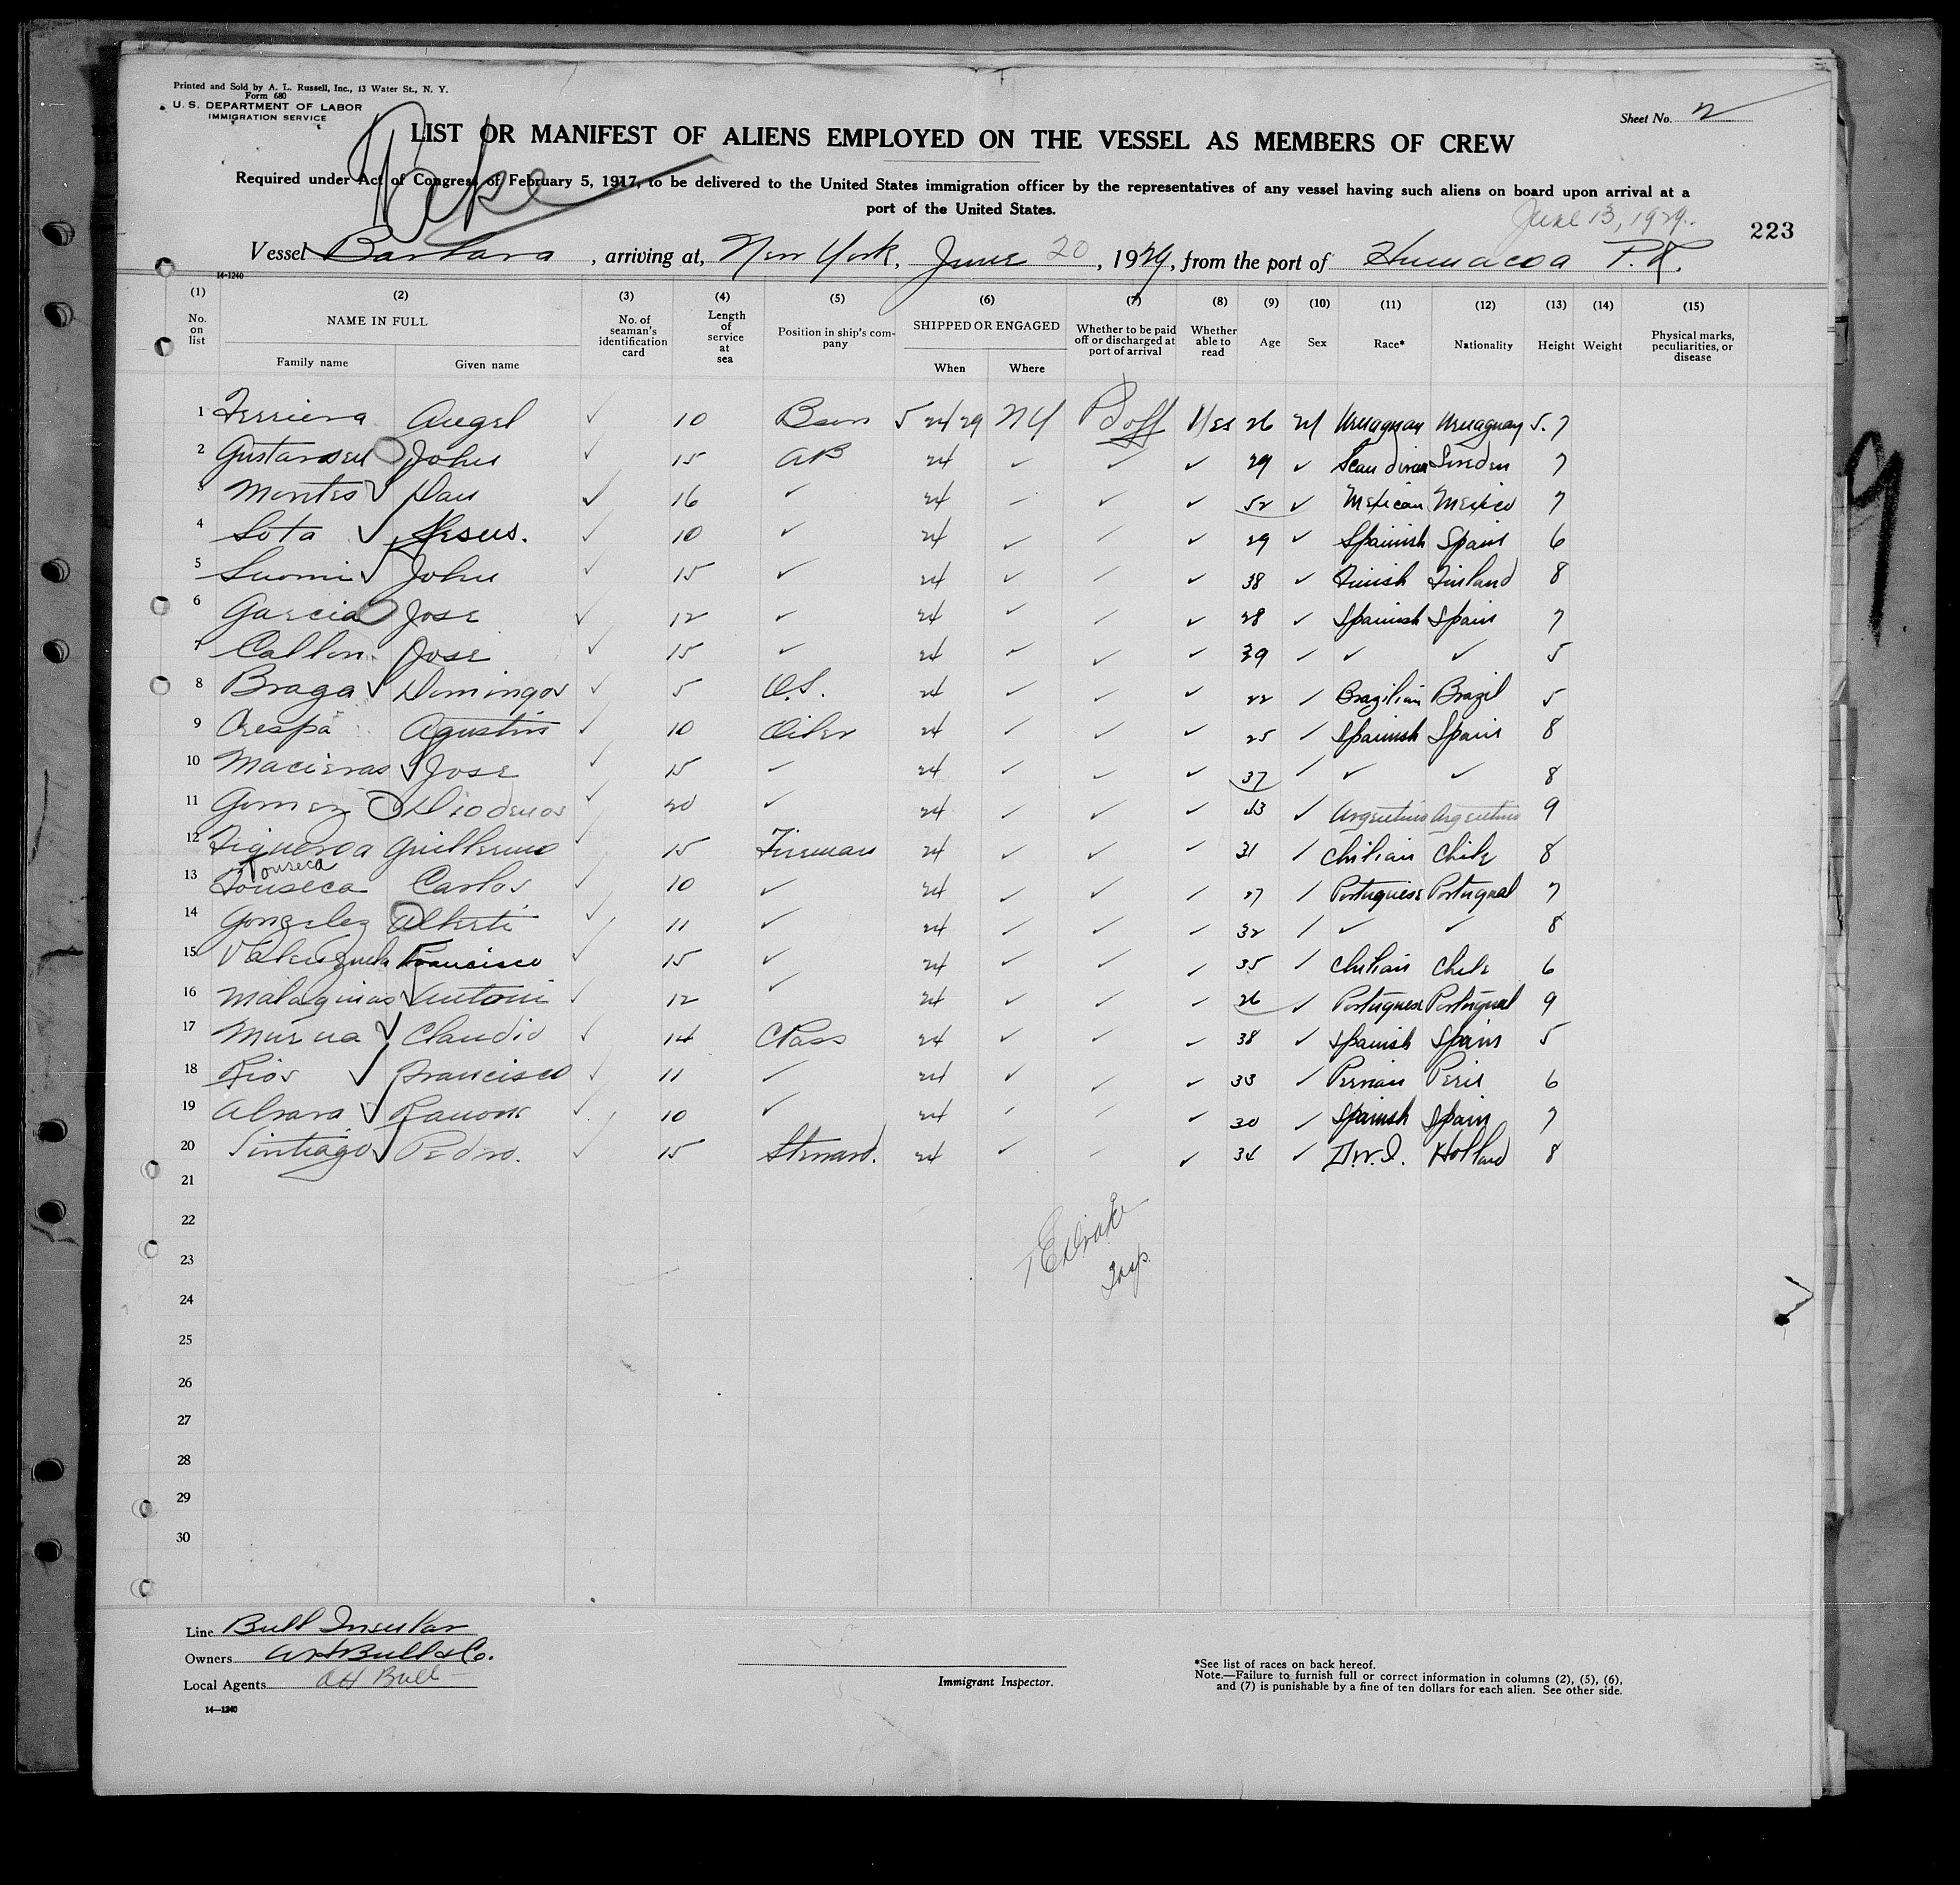 Printed and Sold by A. L. Russell, Inc., 13 Water St., N. Y.
Form 680
U. S. DEPARTMENT OF LABOR
IMMIGRATION SERVICE
Sheet No. 2
LIST OR MANIFEST OF ALIENS EMPLOYED ON THE VESSEL AS MEMBERS OF CREW
Required under Act of Congress of February 5, 1917, to be delivered to the United States immigration officer by the representatives of any vessel having such aliens on board upon arrival at a
port of the United States.
June 13, 1929.
223
Vessel Barbara, arriving at, New York, June 20, 1929, from the port of Humacoa P.R.
14-1240
(1) (2) (3) (4) (5) (6) (7) (8) (9) (10) (11) (12) (13) (14) (15)
No. on list NAME IN FULL Family name Given name No. of seaman's identification card Length of service at sea Position in ship's company SHIPPED OR ENGAGED When Where Whether to be paid off or discharged at port of arrival Whether able to read Age Sex Race* Nationality Height Weight Physical marks, peculiarities, or disease
1 Ferriera Angel ✓ 10 Bosn 5 24/29 NY Pd off Yes 26 M Uruaguay Uruaguay 5.7
2 Gustavsen John ✓ 15 AB 24 ✓ ✓ ✓ 29 ✓ Scandinavan Sweden 7
3 Montes Dan ✓ 16 ✓ 24 ✓ ✓ ✓ 52 ✓ Mexican Mexico 7
4 Sota Jesus. ✓ 10 ✓ 24 ✓ ✓ ✓ 29 ✓ Spanish Spain 6
5 Suomi John ✓ 15 ✓ 24 ✓ ✓ ✓ 38 ✓ Finish Finland 8
6 Garcia Jose ✓ 12 ✓ 24 ✓ ✓ ✓ 28 ✓ Spanish Spain 7
7 Callon Jose ✓ 15 ✓ 24 ✓ ✓ ✓ 39 ✓ ✓ ✓ 5
8 Braga Domingos ✓ 5 O.S. 24 ✓ ✓ ✓ 22 ✓ Brazilian Brazil 5
9 Crespa Agustin ✓ 10 Oiler 24 ✓ ✓ ✓ 25 ✓ Spanish Spain 8
10 Macieras Jose ✓ 15 ✓ 24 ✓ ✓ ✓ 37 ✓ ✓ ✓ 8
11 Gomez ✓ 20 ✓ 24 ✓ ✓ ✓ 43 ✓ Argentina Argentina 9
12 Figueroa Guillermo ✓ 15 Fireman 24 ✓ ✓ ✓ 31 ✓ Chilian Chile 8
Fonseca
13 Fonseca Carlos ✓ 10 ✓ 24 ✓ ✓ ✓ 27 ✓ Portuguese Portugual 7
14 Gonzalez Alberti ✓ 11 ✓ 24 ✓ ✓ ✓ 32 ✓ ✓ ✓ 8
15 Valenzuela Francisco ✓ 15 ✓ 24 ✓ ✓ ✓ 35 ✓ Chilian Chile 6
16 Malaquias Antoni ✓ 12 ✓ 24 ✓ ✓ ✓ 26 ✓ Portuguese Portugual 9
17 Murua Claudio ✓ 14 CPass 24 ✓ ✓ ✓ 38 ✓ Spanish Spain 5
18 Rios Francisco ✓ 11 ✓ 24 ✓ ✓ ✓ 33 ✓ Peruan Peru 6
19 Ramon ✓ 10 ✓ 24 ✓ ✓ ✓ 30 ✓ Spanish Spain 7
20 Sintiago Pedro. ✓ 15 Steward. 24 ✓ ✓ ✓ 34 ✓ D.W.I. Holland 8
21
22
23
24
25
26
27
28
29
30
EDrake
Insp.
Line Bull Insular
Owners AH Bull & Co.
Local Agents AH Bull
14-1240
Immigrant Inspector.
*See list of races on back hereof.
Note.—Failure to furnish full or correct information in columns (2), (5), (6),
and (7) is punishable by a fine of ten dollars for each alien. See other side.
9